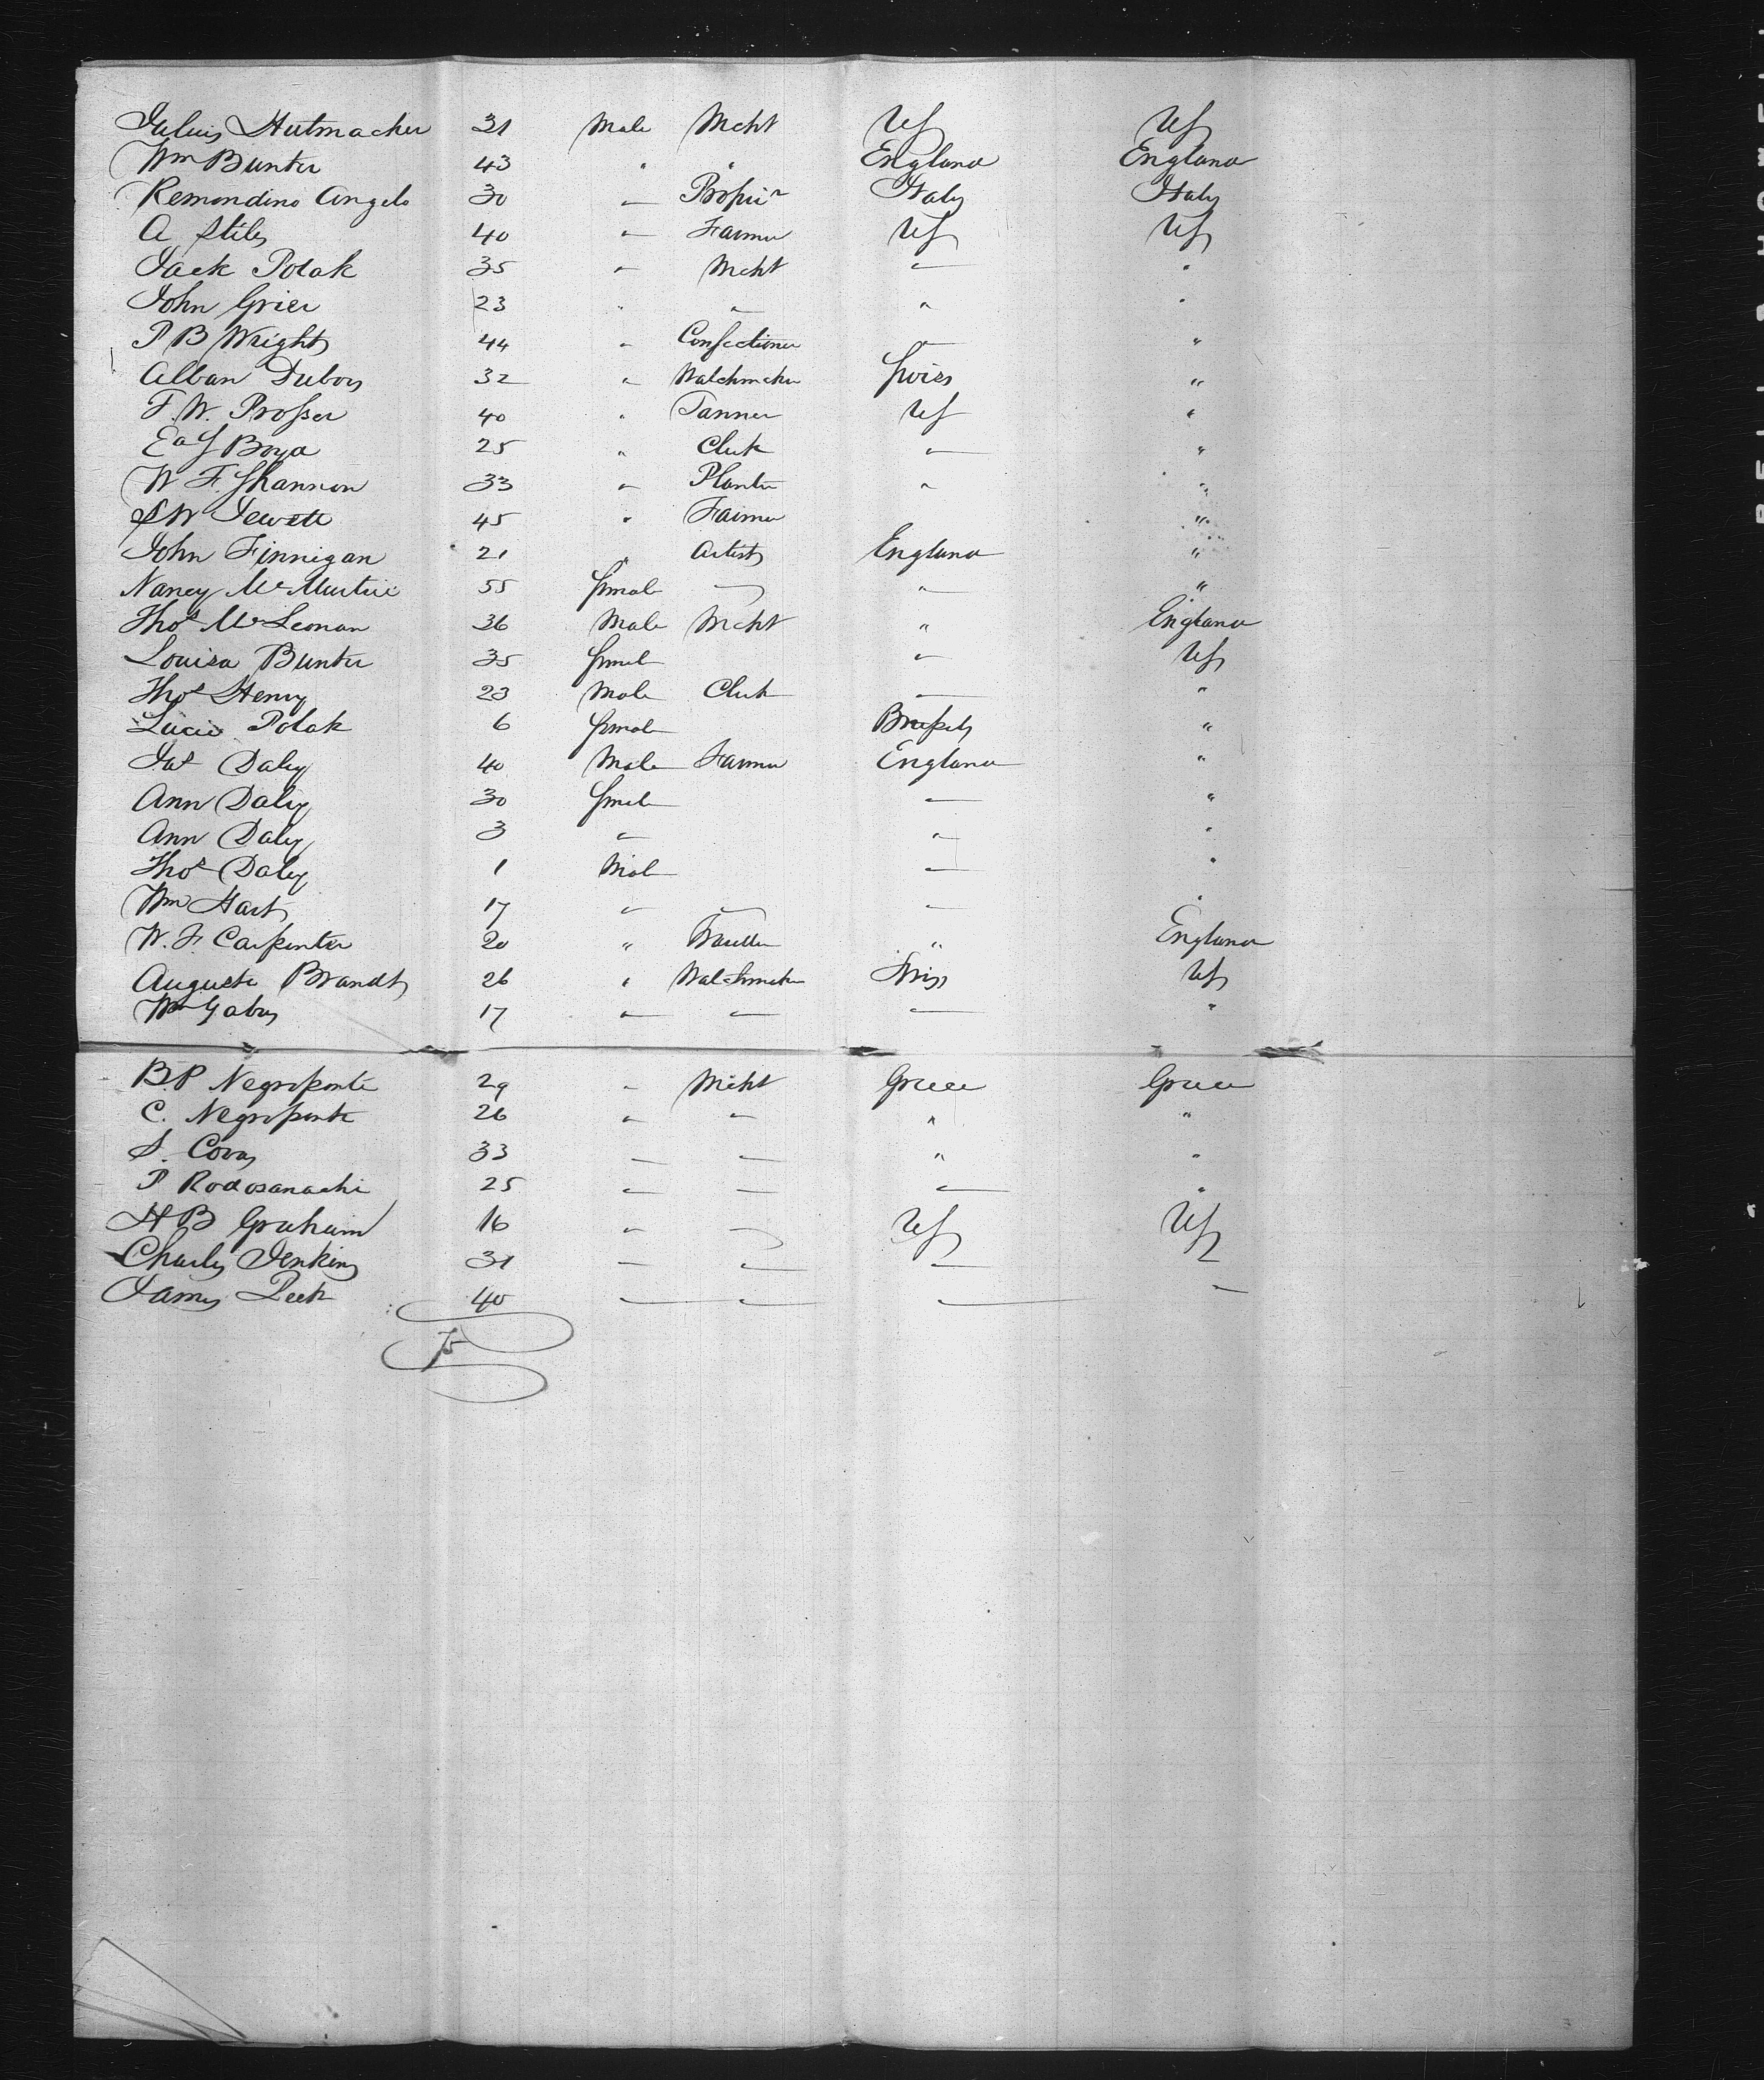 Julius Hutmacher 31 Male Mcht US US
Wm Bunter 43 " " England England
Remondino Angelo 30 " Propri'r Italy Italy
A Stiles 40 " Farmer US US
Jack Polak 35 " Mcht " "
John Grier 23 " " " "
P B Wright 44 " Confectioner " "
Alban Dubois 32 " Watchmaker Swiss "
F. W. Prosser 40 " Tanner US "
Ed S Boyd 25 " Clerk " "
W F. Shannon 33 " Planter " "
S W Jewett 45 " Farmer "
John Finnigan 21 " Artist England "
Nancy McMurtrie 55 female — " "
Thos McLeonan 36 Male Mcht " England
Louisa Bunter 35 female " US
Thos Henry 23 Male Clerk " "
Lucie Polak 6 female Brussels "
Jas Daley 40 Male Farmer England "
Ann Daley 30 female " "
Ann Daley 3 " " "
Thos Daley 1 Male " "
Wm Hart 17 " " " "
W. F Carpenter 20 " Traveller " England
Auguste Brandt 26 " Watchmaker Swiss US
Wm Gabus 17 " " " "
B.P Negroponte 29 " Mcht Greece Greece
C. Negroponte 26 " " " "
S. Covas 33 " " " "
P Rodosanachi 25 " " " "
H B Graham 16 " " US US
Charles Jenkins 31 " " "
James Peek 40 " " " "
75